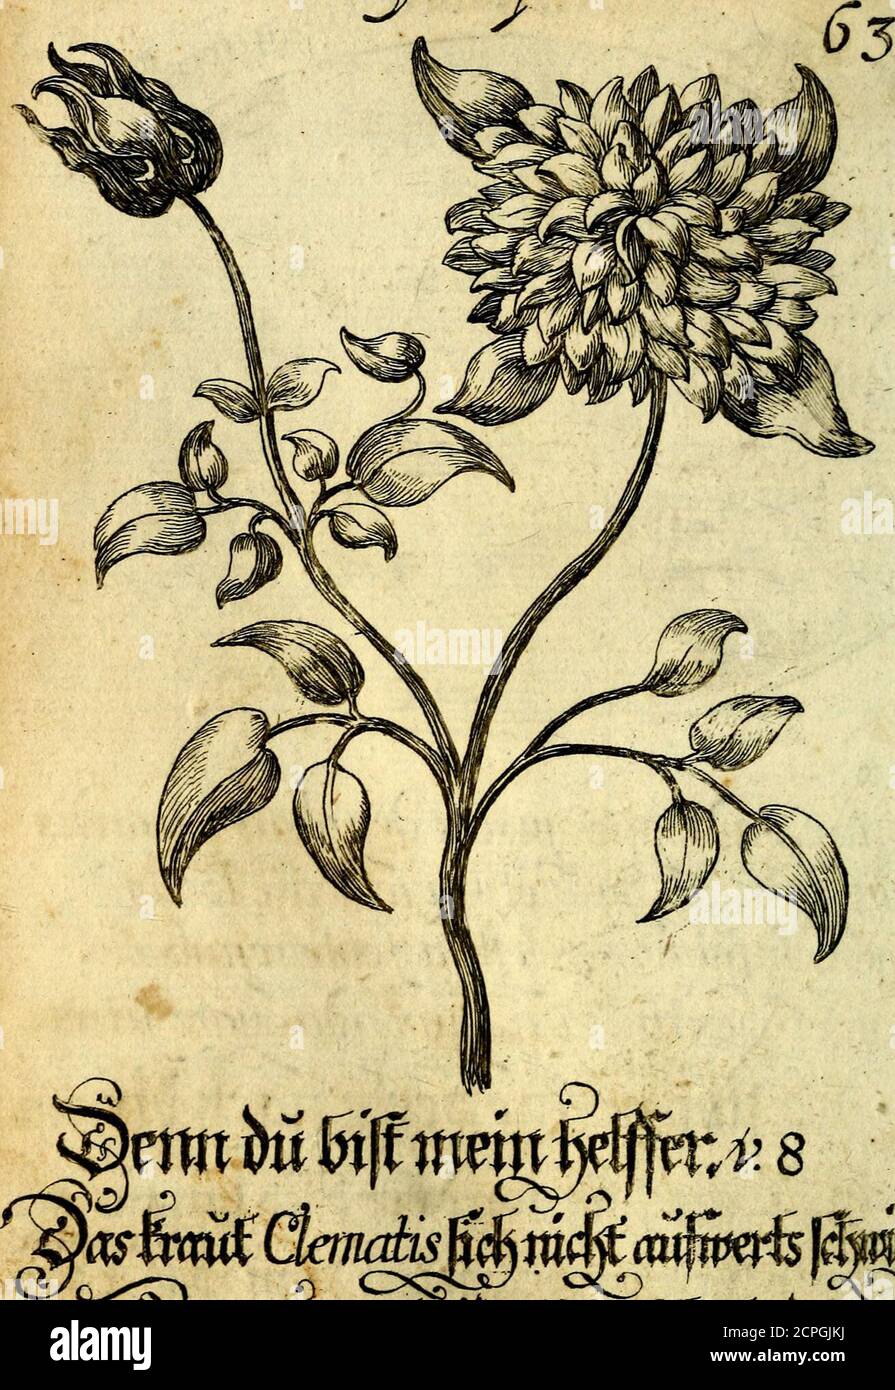 63
Denn du bist mein helffer. v. 8
Das kraut Clematis sich nicht aufwerts
alamy
Image ID: 2CPGJKJ
www.alamy.com